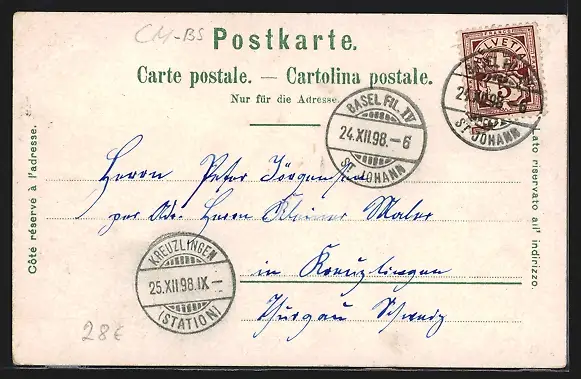 CM-BS
Postkarte.
Carte postale. — Cartolina postale.
Nur für die Adresse.
FRANCO
HELVETIA
5
BASEL FIL. IV
24.XII.98.-6
ST. JOHANN
BASEL FIL. IV
24.XII.98.-6
ST. JOHANN
Côté réservé à l'adresse.
Lato riservato all' indirizzo.
Herrn Peter Jörgensen
per Adr. Herrn Kleiner Maler
in Kreuzlingen
Thurgau Schweiz
KREUZLINGEN
25.XII.98.IX-
(STATION)
28€